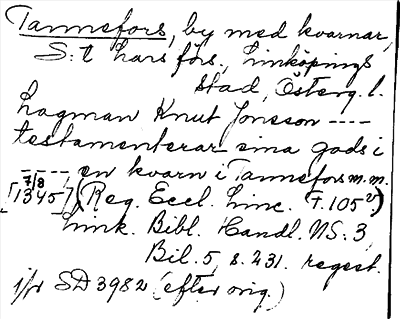 Tannefors, by med kvarnar,
S:t Lars förs., Linköpings
stad, Österg. l.
Lagman Knut Jonsson ----
testamenterar sina gods i
---- en kvarn i Tannefors m.m.
7/8
[1345] (Reg. Eccl. Linc. F. 105v)
Link. Bibl. Handl. NS: 3,
Bil. 5, s. 231. regest.
jfr SD 3982 (efter orig.)